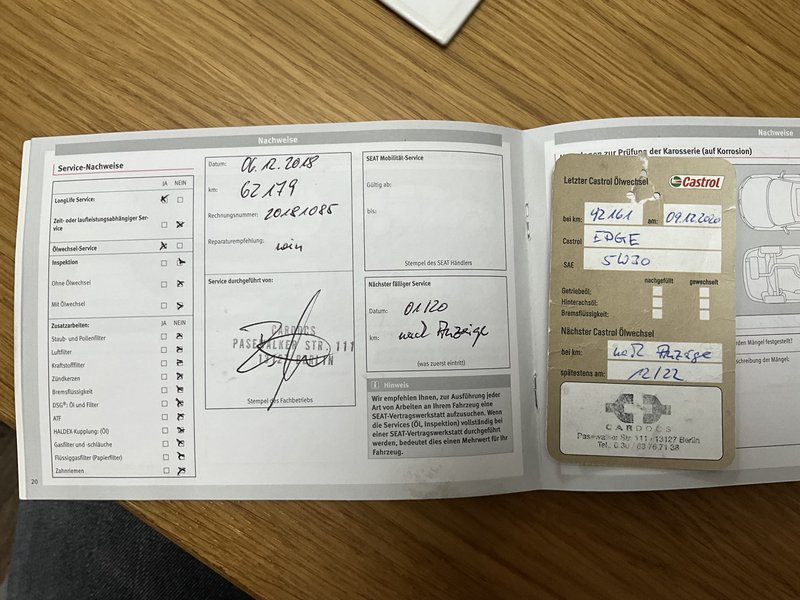 Nachweise
Service-Nachweise
JA NEIN
LongLife Service:
Zeit- oder laufleistungsabhängiger Ser-
vice
Ölwechsel-Service
Inspektion
Ohne Ölwechsel
Mit Ölwechsel
Zusatzarbeiten: JA NEIN
Staub- und Pollenfilter
Luftfilter
Kraftstofffilter
Zündkerzen
Bremsflüssigkeit
DSG®: Öl und Filter
ATF
HALDEX-Kupplung: (Öl)
Gasfilter und -schläuche
Flüssiggasfilter (Papierfilter)
Zahnriemen
20
Datum: 06.12.2018
km: 62179
Rechnungsnummer: 20181085
Reparaturempfehlung:
Service durchgeführt von:
CARDOCS
PASEWALKER STR. 111
13127 BERLIN
Stempel des Fachbetriebs
SEAT Mobilität-Service
Gültig ab:
bis:
Stempel des SEAT Händlers
Nächster fälliger Service
Datum: 01/20
km: nach Anzeige
(was zuerst eintritt)
Hinweis
Wir empfehlen Ihnen, zur Ausführung jeder
Art von Arbeiten an Ihrem Fahrzeug eine
SEAT-Vertragswerkstatt aufzusuchen. Wenn
die Services (Öl, Inspektion) vollständig bei
einer SEAT-Vertragswerkstatt durchgeführt
werden, bedeutet dies einen Mehrwert für Ihr
Fahrzeug.
Nachweise
zur Prüfung der Karosserie (auf Korrosion)
Letzter Castrol Ölwechsel Castrol
bei km: 92161 am: 09.12.2020
Castrol EDGE
SAE 5W30
nachgefüllt gewechselt
Getriebeöl:
Hinterachsöl:
Bremsflüssigkeit:
Nächster Castrol Ölwechsel
bei km: nach Anzeige
spätestens am: 12/22
CARDOCS
Pasewalker Str. 111 · 13127 Berlin
Tel.: 0 30 / 83 76 71 38
den Mängel festgestellt?
schreibung der Mängel: